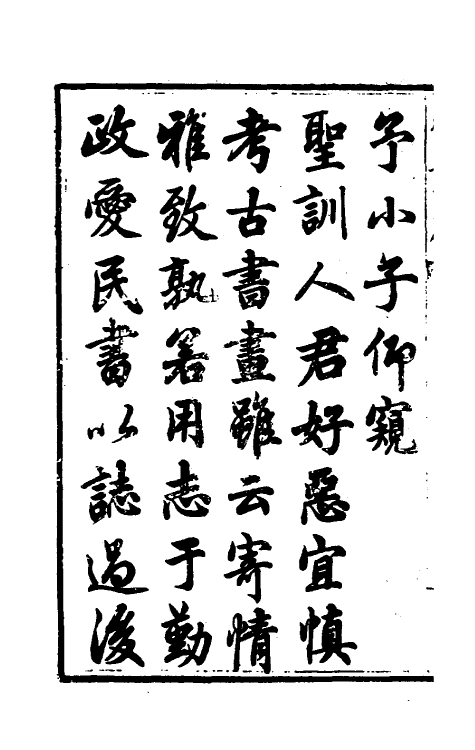 予小子仰窺
聖訓人君好惡宜慎
考古書畫雖云寄情
雅致孰若用志于勤
政愛民書以誌過後